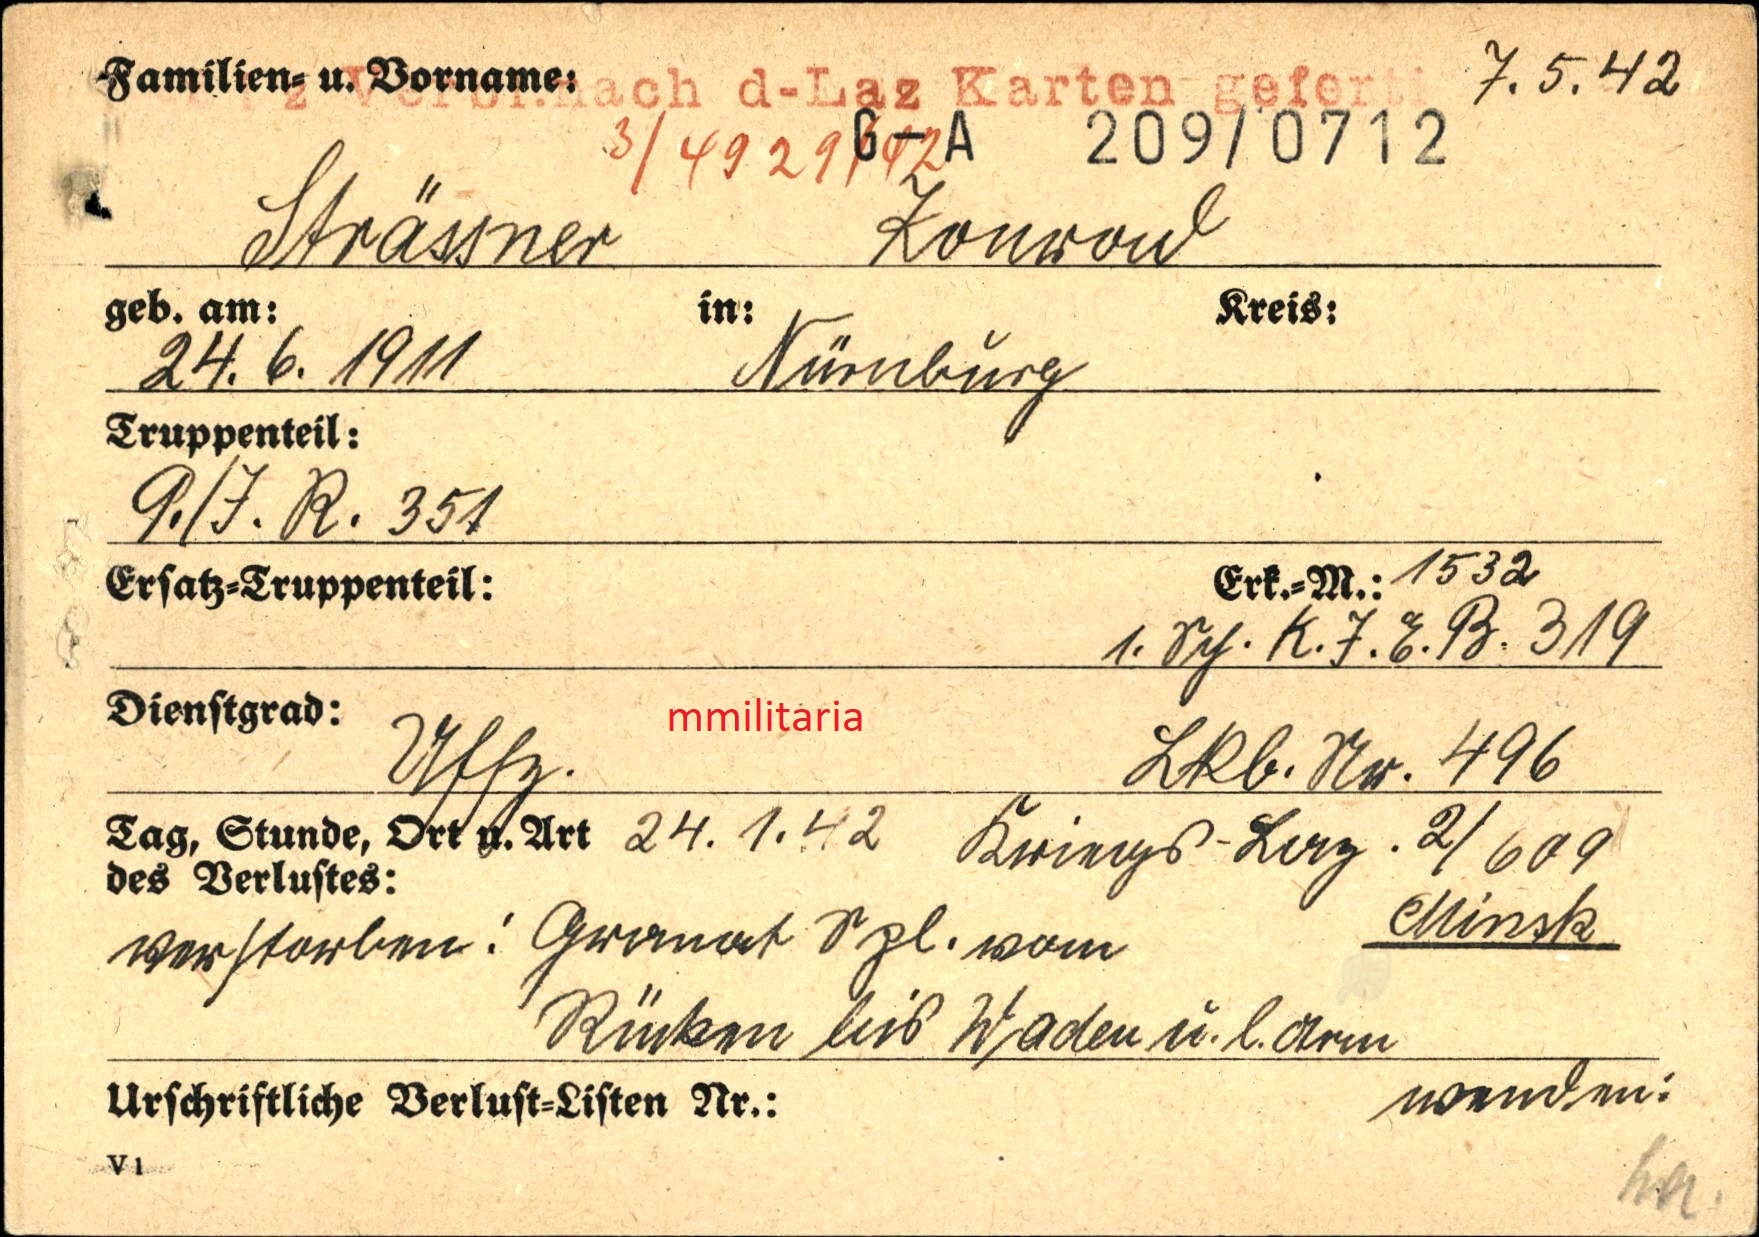 Familien- u. Vorname:
Verbl. nach d-Laz Karten gefert
7.5.42
3/4929/42
G-A 209/0712
Strässner Konrad
geb. am: in: Kreis:
24. 6. 1911 Nürnburg
Truppenteil:
9./J. R. 351
Ersatz-Truppenteil: Erk.-M.: 1532
1. Sch. K. J. E. B. 319
Dienstgrad:
mmilitaria
Uffz. Lkb. Nr. 496
Tag, Stunde, Ort u. Art 24. 1. 42 Kriegs-Laz. 2/609
des Verlustes:
Minsk
verstorben: Granat Spl. vom
Rücken bis Waden u. l. Arm
Urschriftliche Verlust-Listen Nr.: wenden:
V 1